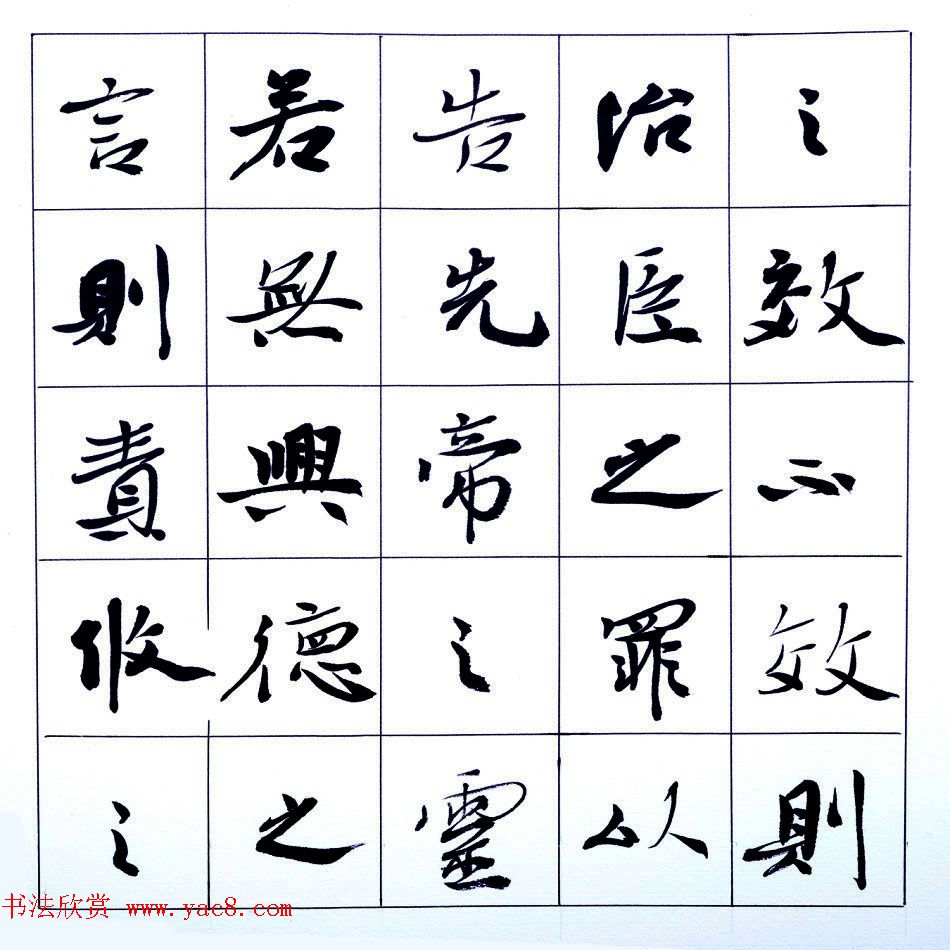 之效不效則
治臣之罪以
告先帝之靈
若無興德之
言則責攸之
书法欣赏 www.yac8.com